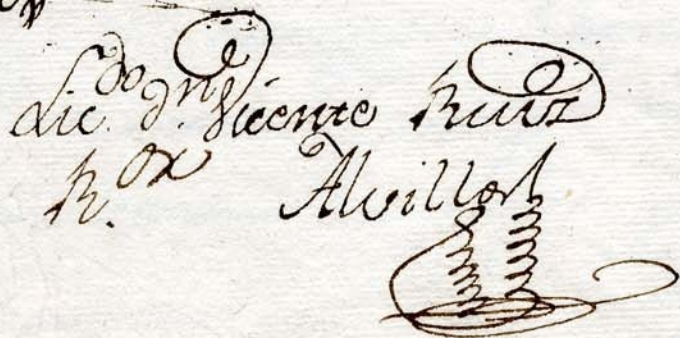 Lic.do dn. Vicente Ruiz
R.or Alvillos